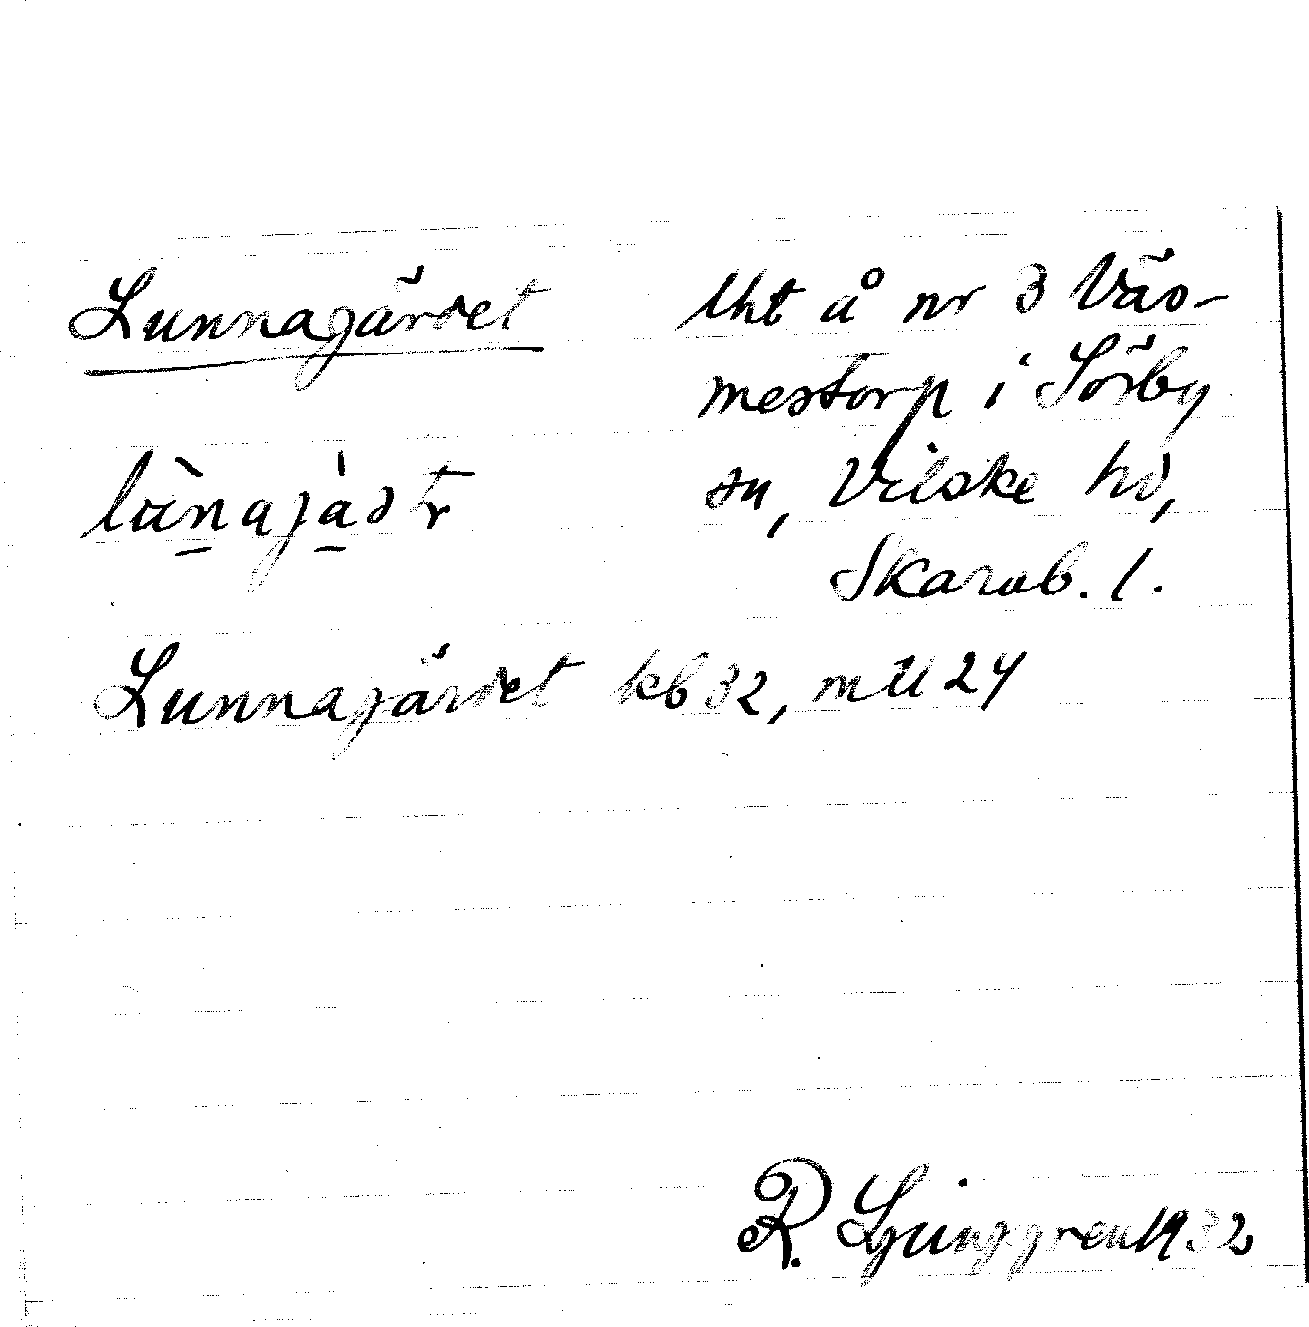 Lunnagärdet Uht å nr 3 Väs-
mestorp i Sörby
sn, Vilske hd,
Skarab. l.
Lunnagärdet kb 32, mU 24
R. Ljunggren 1932